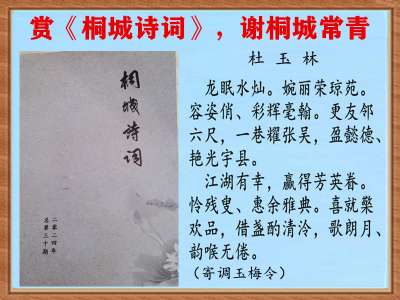 赏《桐城诗词》，谢桐城常青
杜玉林
龙眠水灿。婉丽荣琼苑。
容姿俏、彩辉毫翰。更友邻
六尺，一巷耀张吴，盈懿德、
艳光宇县。
江湖有幸，赢得芳英眷。
怜残叟、惠余雅典。喜就檠
欢品，借盏酌清泠，歌朗月、
韵喉无倦。
（寄调玉梅令）
桐城诗词
二零二四年
总第三十期